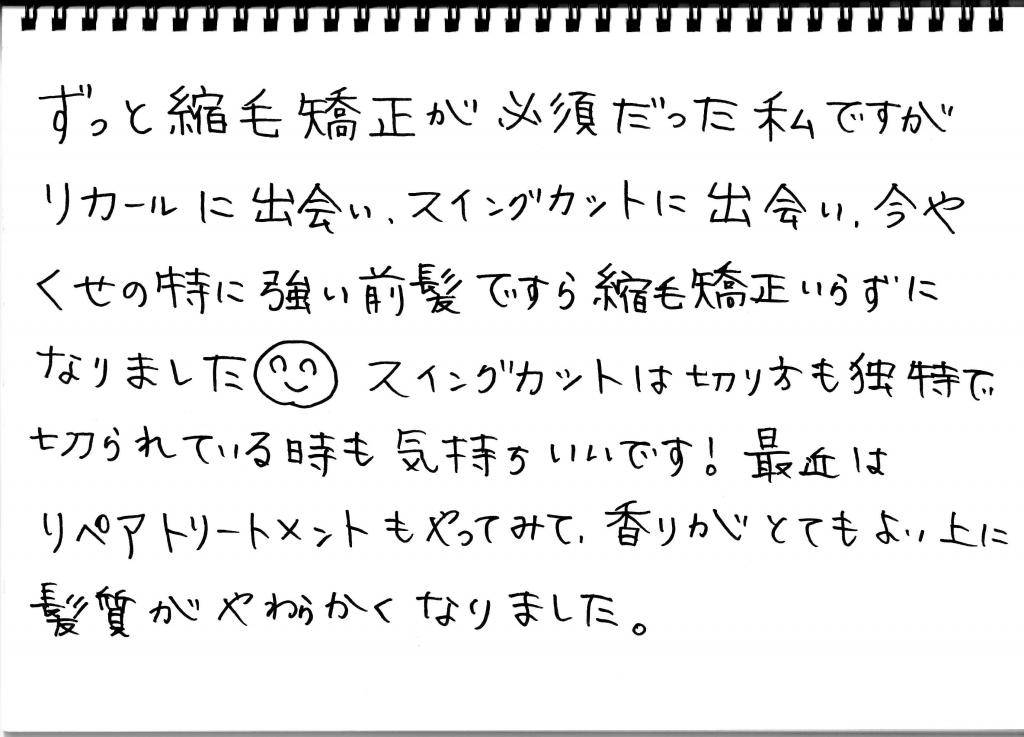 ずっと縮毛矯正が必須だった私ですが
リカールに出会い、スイングカットに出会い、今や
くせの特に強い前髪ですら縮毛矯正いらずに
なりました スイングカットは切り方も独特で
切られている時も気持ちいいです！最近は
リペアトリートメントもやってみて、香りがとてもよい上に
髪質がやわらかくなりました。